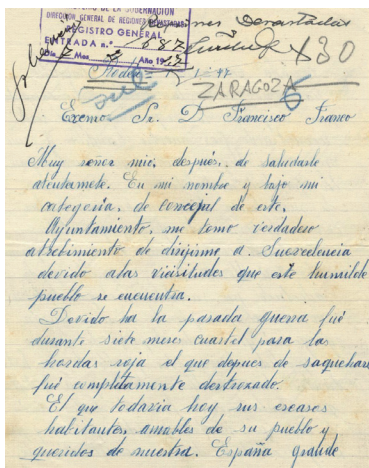 DE LA GOBERNACIÓN
DIRECCIÓN GENERAL DE REGIONES DEVASTADAS
REGISTRO GENERAL
ENTRADA n.º 687
Mes Año 19
Regiones Devastadas
830
1-47
ZARAGOZA
Excmo Sr. D Francisco Franco
Muy señor mio, después, de saludarle
atentamete. En mi nombre y bajo mi
categoria, de concejal de este.
Ayuntamiento, me tomo verdadero
atrebimiento de dirijirme a. Suexcelencia
devido alas vicisitudes que este humilde
pueblo se encuentra.
Devido ha la pasada guerra fué
durante siete meses cuartel para las
hordas roja el que depues de saquehare
fué completamente destrozado.
El que todaria hoy sus escasos
habitantes, amables de su pueblo y
queridos de nuestra. España grande